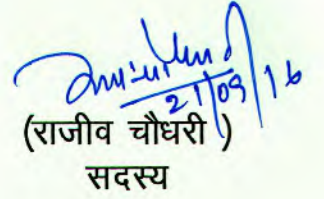 21/09/16
(राजीव चौधरी )
सदस्य